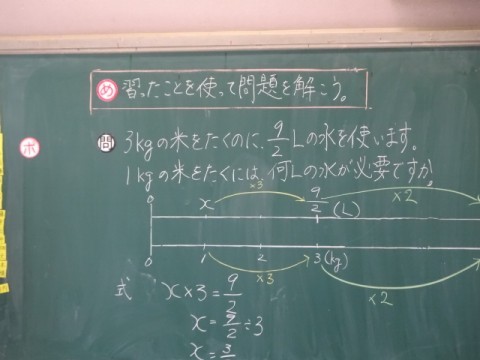 め 習ったことを使って問題を解こう。
ホ
問 3kgの米をたくのに、9/2Lの水を使います。
1kgの米をたくには、何Lの水が必要ですか。
×3 ×2
0 x 9/2 (L)
0 1 2 3(kg)
×3 ×2
式 x×3=9/2
x=9/2÷3
x=3